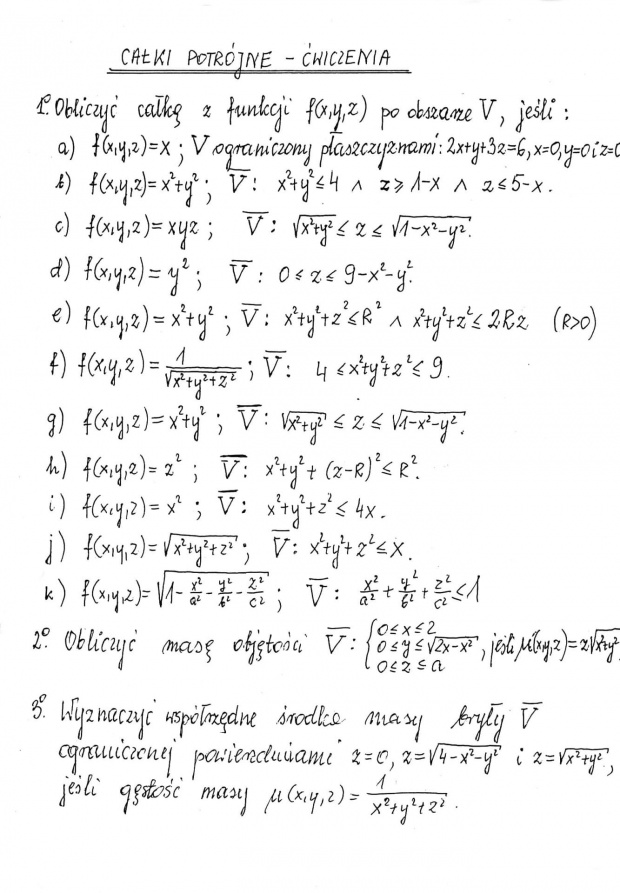 CAŁKI POTRÓJNE - ĆWICZENIA
1º. Obliczyć całkę z funkcji f(x,y,z) po obszarze V, jeśli :
a) f(x,y,z)=x ; V ograniczony płaszczyznami: 2x+y+3z=6, x=0, y=0 i z=0
b) f(x,y,z)=x²+y² ; V̄ : x²+y²≤4 ∧ z≥1-x ∧ z≤5-x.
c) f(x,y,z)=xyz ; V̄ : √(x²+y²) ≤ z ≤ √(1-x²-y²).
d) f(x,y,z)=y² ; V̄ : 0≤z≤9-x²-y².
e) f(x,y,z)=x²+y² ; V̄ : x²+y²+z²≤R² ∧ x²+y²+z²≤2Rz (R>0)
f) f(x,y,z)=1/√(x²+y²+z²) ; V̄ : 4≤x²+y²+z²≤9.
g) f(x,y,z)=x²+y² ; V̄ : √(x²+y²) ≤ z ≤ √(1-x²-y²).
h) f(x,y,z)=z² ; V̄ : x²+y²+(z-R)²≤R².
i) f(x,y,z)=x² ; V̄ : x²+y²+z²≤4x.
j) f(x,y,z)=√(x²+y²+z²) ; V̄ : x²+y²+z²≤x.
k) f(x,y,z)=√(1-x²/a²-y²/b²-z²/c²) ; V̄ : x²/a²+y²/b²+z²/c²≤1
2º. Obliczyć masę objętości V̄ : { 0≤x≤2 0≤y≤√(2x-x²) 0≤z≤a , jeśli μ(x,y,z)=z√(x²+y²)
3º. Wyznaczyć współrzędne środka masy bryły V̄
ograniczonej powierzchniami z=0, z=√(4-x²-y²) i z=√(x²+y²),
jeśli gęstość masy μ(x,y,z)=1/(x²+y²+z²).